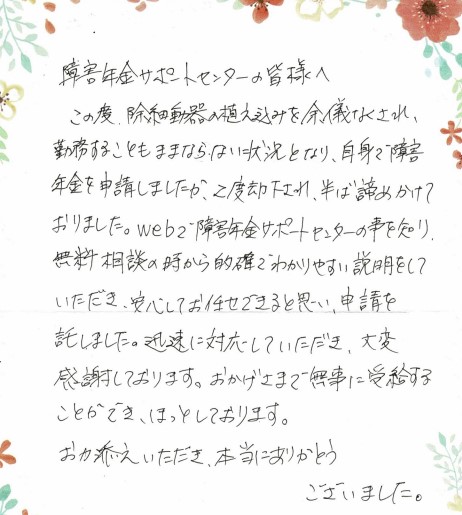 障害年金サポートセンターの皆様へ
この度、除細動器の植え込みを余儀なくされ、
勤務することもままならない状況となり、自身で障害
年金を申請しましたが、2度却下され、半ば諦めかけて
おりました。webで障害年金サポートセンターの事を知り、
無料相談の時から的確でわかりやすい説明をして
いただき、安心してお任せできると思い、申請を
託しました。迅速に対応していただき、大変
感謝しております。おかげさまで無事に受給する
ことができ、ほっとしております。
お力添えいただき、本当にありがとう
ございました。